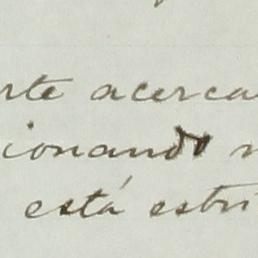 rte acerca
ionando
está estri